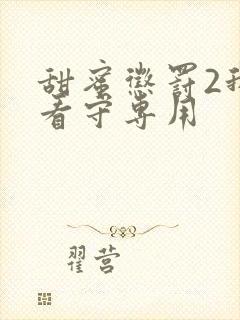 甜蜜惩罚2我
看守专用
翟营